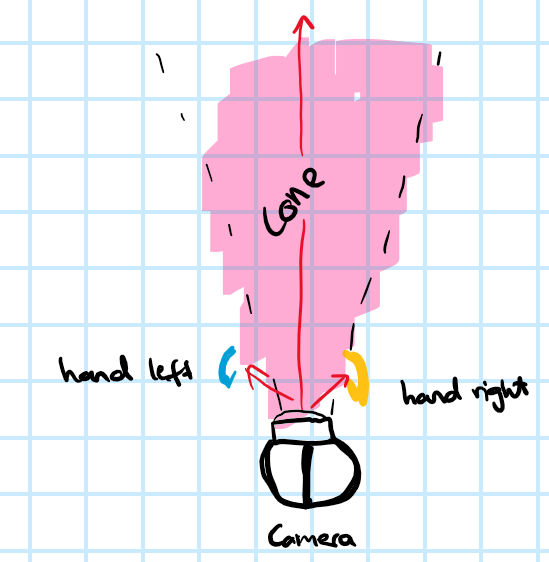 Cone
hand left
hand right
Camera